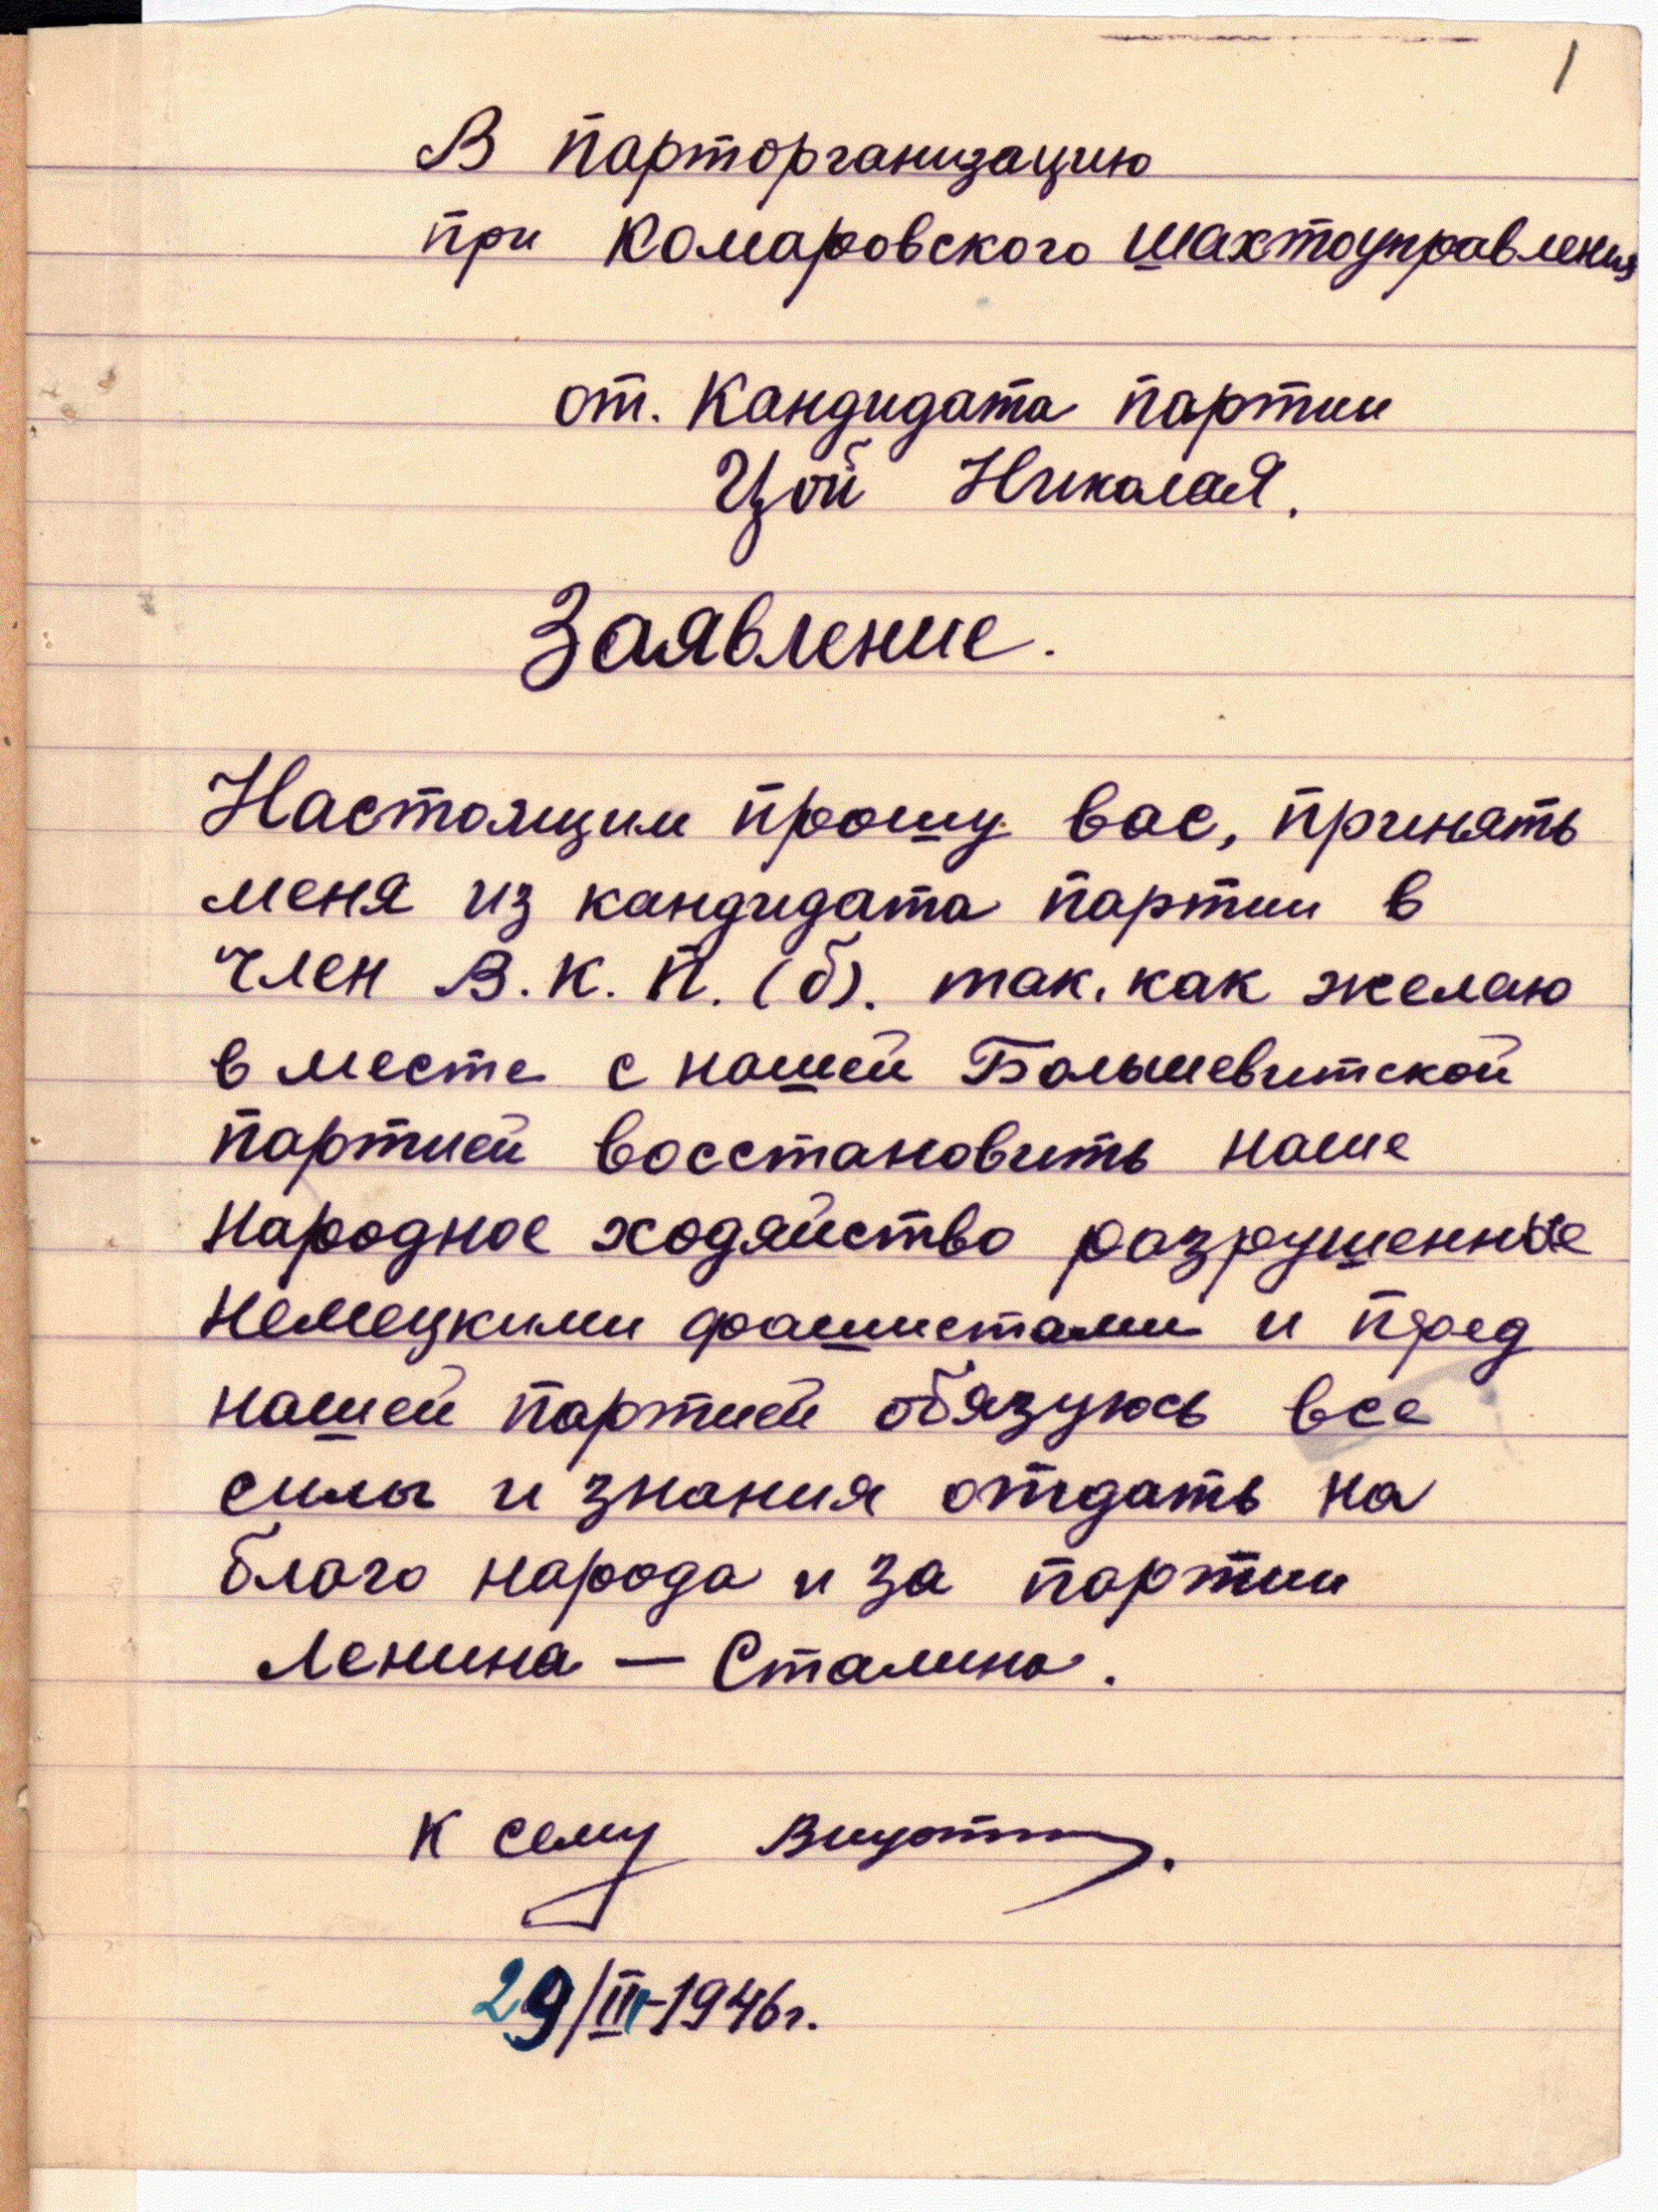 1
В парторганизацию
при Комаровского шахтоуправления
от. Кандидата партии
Цой Николая.
Заявление.
Настоящим прошу вас, принять
меня из кандидата партии в
член В.К.П.(б). так. как желаю
в месте с нашей Большевитской
партией восстановить наше
народное ходяйство разрушенные
немецкими фашистами и перед
нашей партией обязуюсь все
силы и знания отдать на
благо народа и за партии
Ленина — Сталина.
К сему
29/III-1946г.